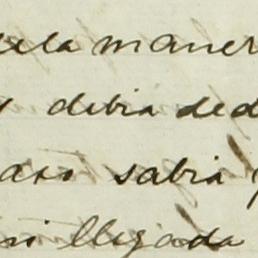 dela maner
debia ded
sabia
llegada